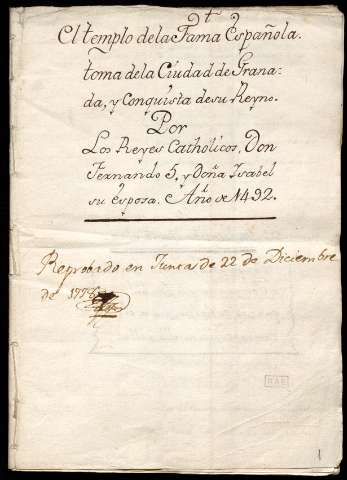 El templo de la Fama Española.
toma de la Ciudad de Grana=
da, y Conquista de su Reyno.
Por
Los Reyes Catholicos, Don
Fernando 5. y Doña Isabel
su esposa. Año de 1492.
Reprobado en Juntas de 22 de Diciembre
de
RAE
1